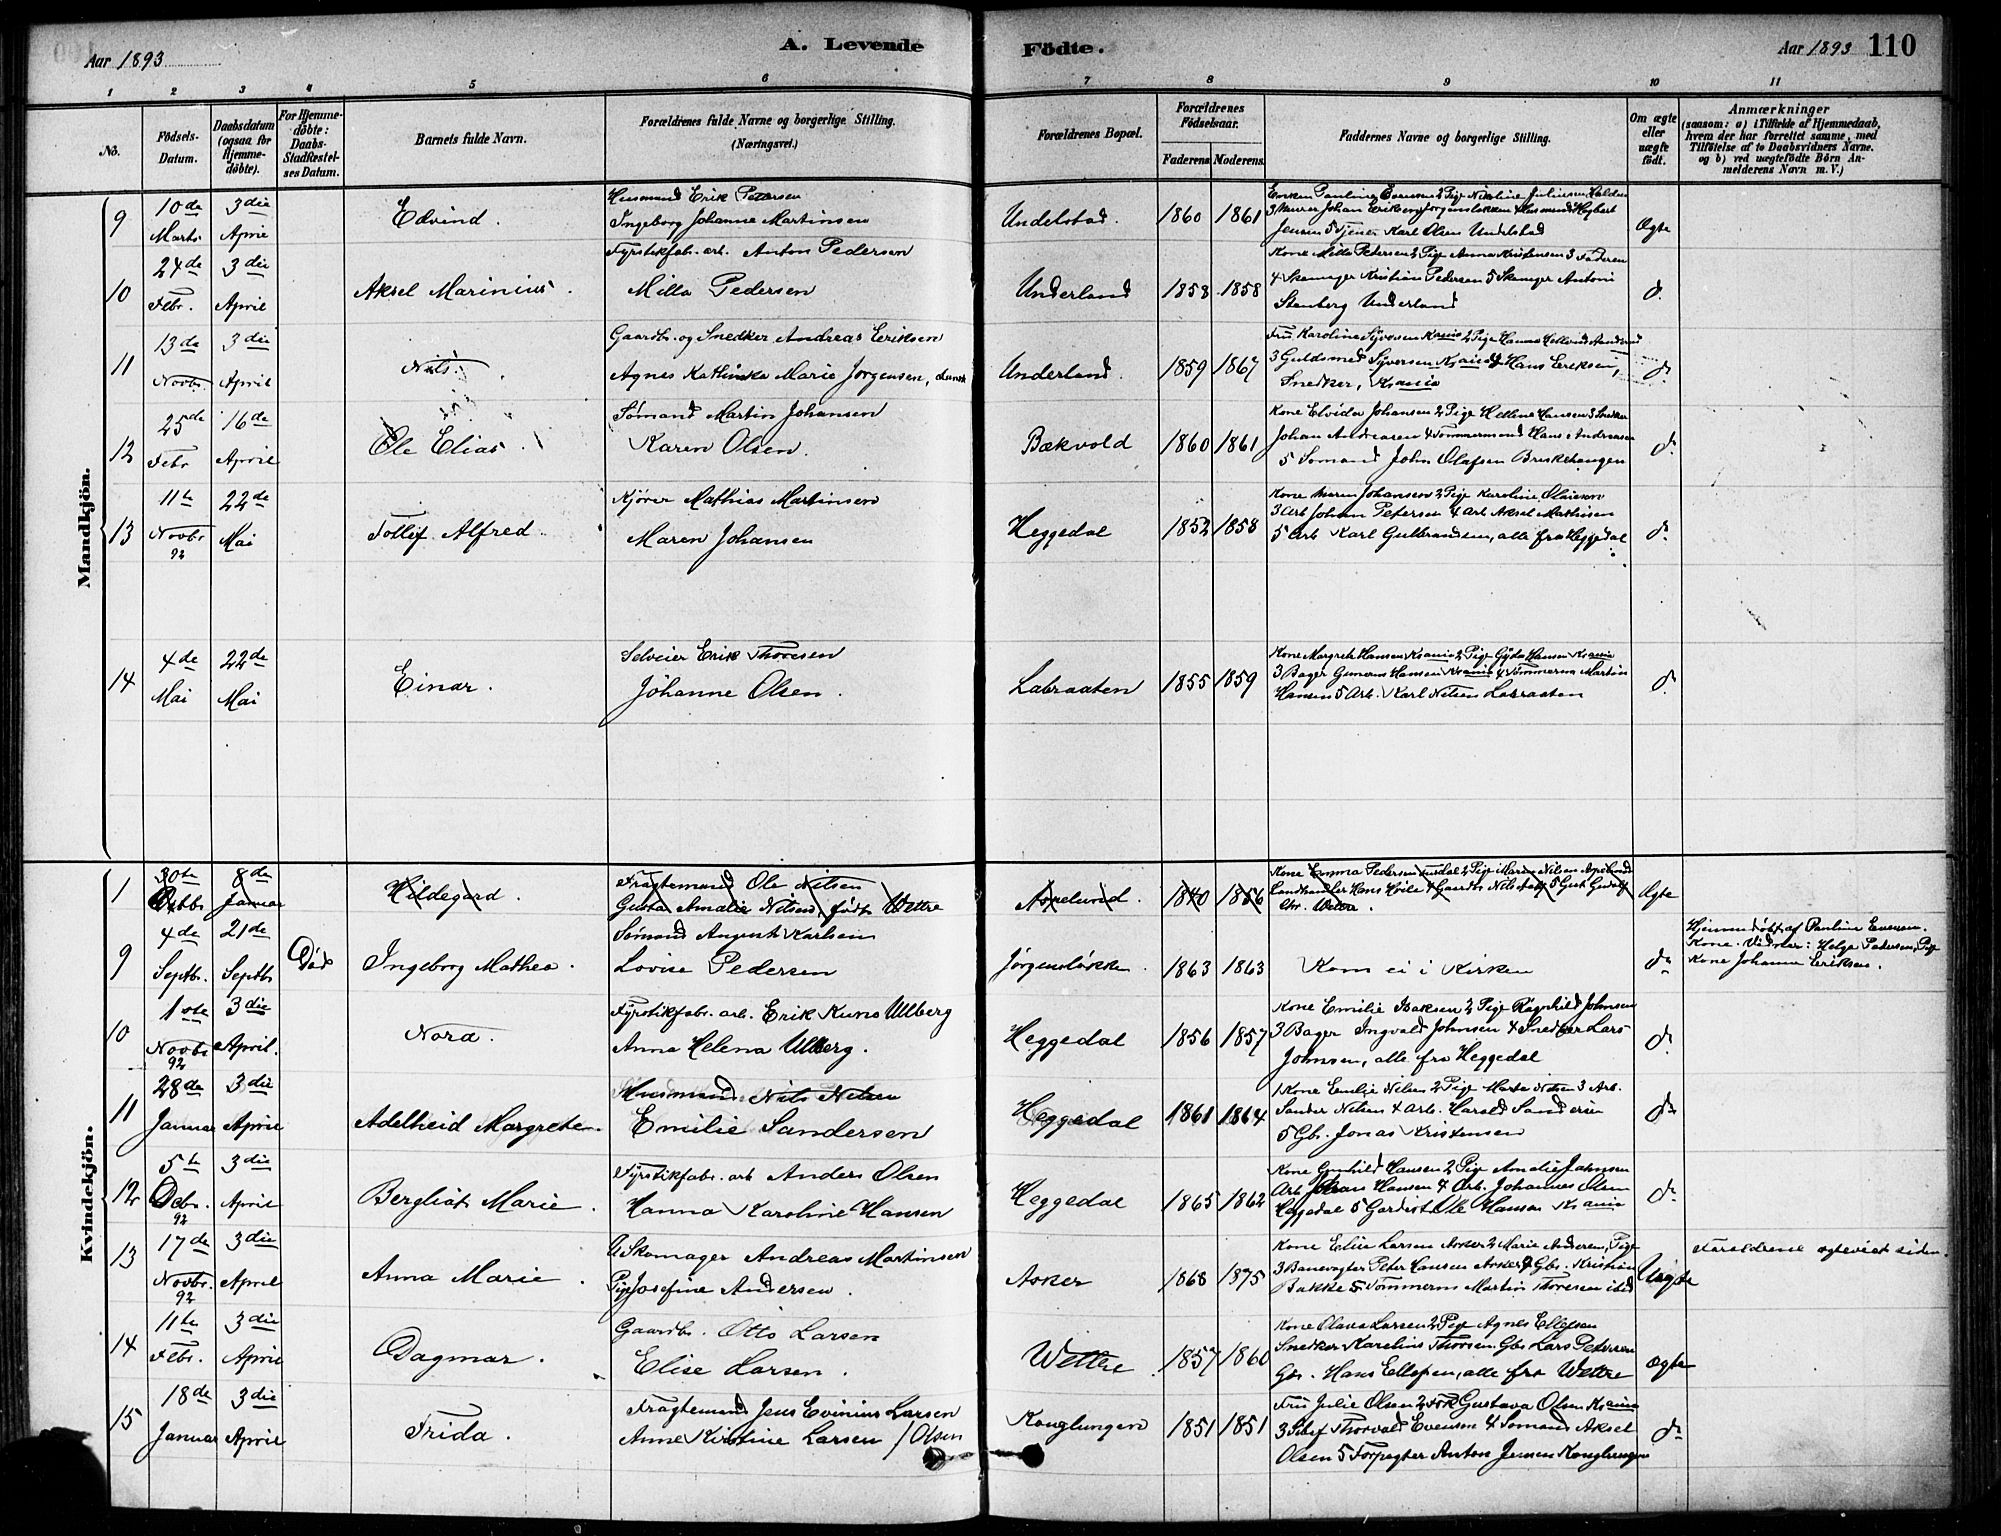 Aar 1893
A. Levende
Födte.
Aar 1893
110
1 2 3 4 5 6 7 8 9 10 11
No.
Födsels-Datum.
Daabsdatum (ogsaa for Hjemmedöbte).
For Hjemmedöbte: Daabs-Stadfæstelses Datum.
Barnets fulde Navn.
Forældrenes fulde Navne og borgerlige Stilling.
(Næringsvei.)
Forældrenes Bopæl.
Forældrenes Födselsaar.
Faderens Moderens.
Faddernes Navne og borgerlige Stilling.
Om ægte eller uægte födt.
Anmærkninger
(saasom: a) i Tilfælde af Hjemmedaab, hvem der har forrettet samme, med Tilföielse af to Daabsvidners Navne. og b) ved uægtefödte Börn Anmelderens Navn m. V.)
Mandkjön.
9 10de Marts 3die April
Edvind.
Husmand Erik Pedersen
Ingeborg Johanne Martinsen
Undelstad. 1860 1861
Jensen 5 Tjener Karl Olsen Undelstad
Ægte
10 24de Febr. 3die April
Aksel Marinius.
Fyrstikfab. arb. Anton Pedersen
Milla Pedersen
Underland 1858 1858
Kone Milla Pedersen 2 Pige Anna Kristensen 3 Faderen
4 Skomager Kristian Pedersen 5 Skomager Antoni
Stenberg Underland
do.
11 13de Novbr. 3die April
Nils.
Gaardb. og Snedker Andreas Eriksen
Agnes Kathinka Marie Jørgensen, dansk
Underland. 1859 1867
3 Guldsmed Syversen Krania 4 Hans Eriksen,
Snedker, Krania
do.
12 25de Febr 16de April
Ole Elias.
Sömand Martin Johansen
Karen Olsen.
Bækvold 1860 1861
Kone Elvida Johansen 2 Pige Helline Hansen 3 Snedker
Johan Andreasen 4 Tömmermand Hans Andreasen
5 Sömand John Olafsen Breskehaugen
do.
13 11te Novbr 92 22de Mai
Tollif Alfred.
Kjører Mathias Martinsen
Maren Johansen
Heggedal 1852 1858
Kone Maren Johansen 2 Pige Karoline Olaisen
3 Arb Johan Petersen 4 Arb. Aksel Mathisen
5 Arb Karl Gulbrandsen, alle fra Heggedal
do.
14 4de Mai 22de Mai
Einar.
Selveier Erik Thoresen
Johanne Olsen.
Labraaten 1855 1859
Kone Margrete Hansen Krania 2 Pige Gyda Hansen Krania
3 Bager Hansen Krania 4 Tømmerm Martin
Hansen 5 Arb. Karl Nilsen Labraaten
do.
Kvindekjön.
1 30te Octbr. 8de Januar
Hildegard.
Fragtemand Ole Nilsen
Gusta Amalie Nilsen, født Wettre
Aspelund. 1840 1856
Chr. Wettre.
Ægte
9 4de Septb. 21de Septb Død
Ingeborg Mathea.
Sömand August Karlsen
Lovise Pedersen
Jørgensløkken. 1863 1863
Kom ei i Kirken
do.
Hjemmedøbt af Pauline Evensen.
Kone. Vidner: Helga Pedersen, Pige
Kone Johanne Eriksen.
10 1ste Novbr 92 3die April.
Nora.
Fyrstikfab. arb. Erik Kuno Ullberg
Anna Helena Ullberg.
Heggedal 1856 1857
Kone Emilie Isaksen 2 Pige Ragnhild Johnsen
3 Bager Ingvald Johnsen 4 Snedker Lars
Johnsen, alle fra Heggedal
do.
11 28de Januar 3die April
Adelheid Margrete.
Husmand Nils Nilsen
Emilie Sandersen
Heggedal 1861 1864
1 Kone Emilie Nilsen 2 Pige Marta Nilsen 3 Arb.
Sander Nilsen 4 Arb. Harald Sandersen
5 Gb. Jonas Kristensen
do.
12 5te Decbr. 92 3die April
Bergliót Marie.
Fyrstikfab. arb Anders Olsen
Hanna Karoline Hansen
Heggedal 1865 1862
Kone Gunhild Hansen 2 Pige Amalie Johnsen
Arb Johan Hansen 4 Arb. Johannes Olsen
Heggedal 5 Gardist Ole Hansen Krania
do.
13 17de Novbr. 92 3die April
Anna Marie.
U Skomager Andreas Martinsen
Pige Josefine Andersen.
Asker 1868 1875
Kone Elise Larsen Asker 2 Marie Andersen, Pige
3 Banevogter Peter Hansen Asker 4 Gbr. Kristian
Bakke 5 Tömmerm Martin Thoresen ibid
Uægte
Forældrene ægteviet siden.
14 11te Febr. 3die April
Dagmar.
Gaardb. Otto Larsen
Elise Larsen.
Wettre 1857 1860
Kone Olava Larsen 2 Pige Agnes Ellefsen
Snedker Karelius Thorsen. Gbr Lars Petersen
Gb. Hans Ellefsen, alle fra Wettre
ægte
15 18de Januar 3die April
Frida.
Fragtemand Jens Evinius Larsen
Anne Kirstine Larsen / Olsen
Konglungen 1851 1851
Fru Julie Olsen 2 Frk Gustava Olsen Krania
3 Thorvald Evensen 4 Sömand Aksel
Olsen 5 Forpagter Anton Jensen Konglungen
do.